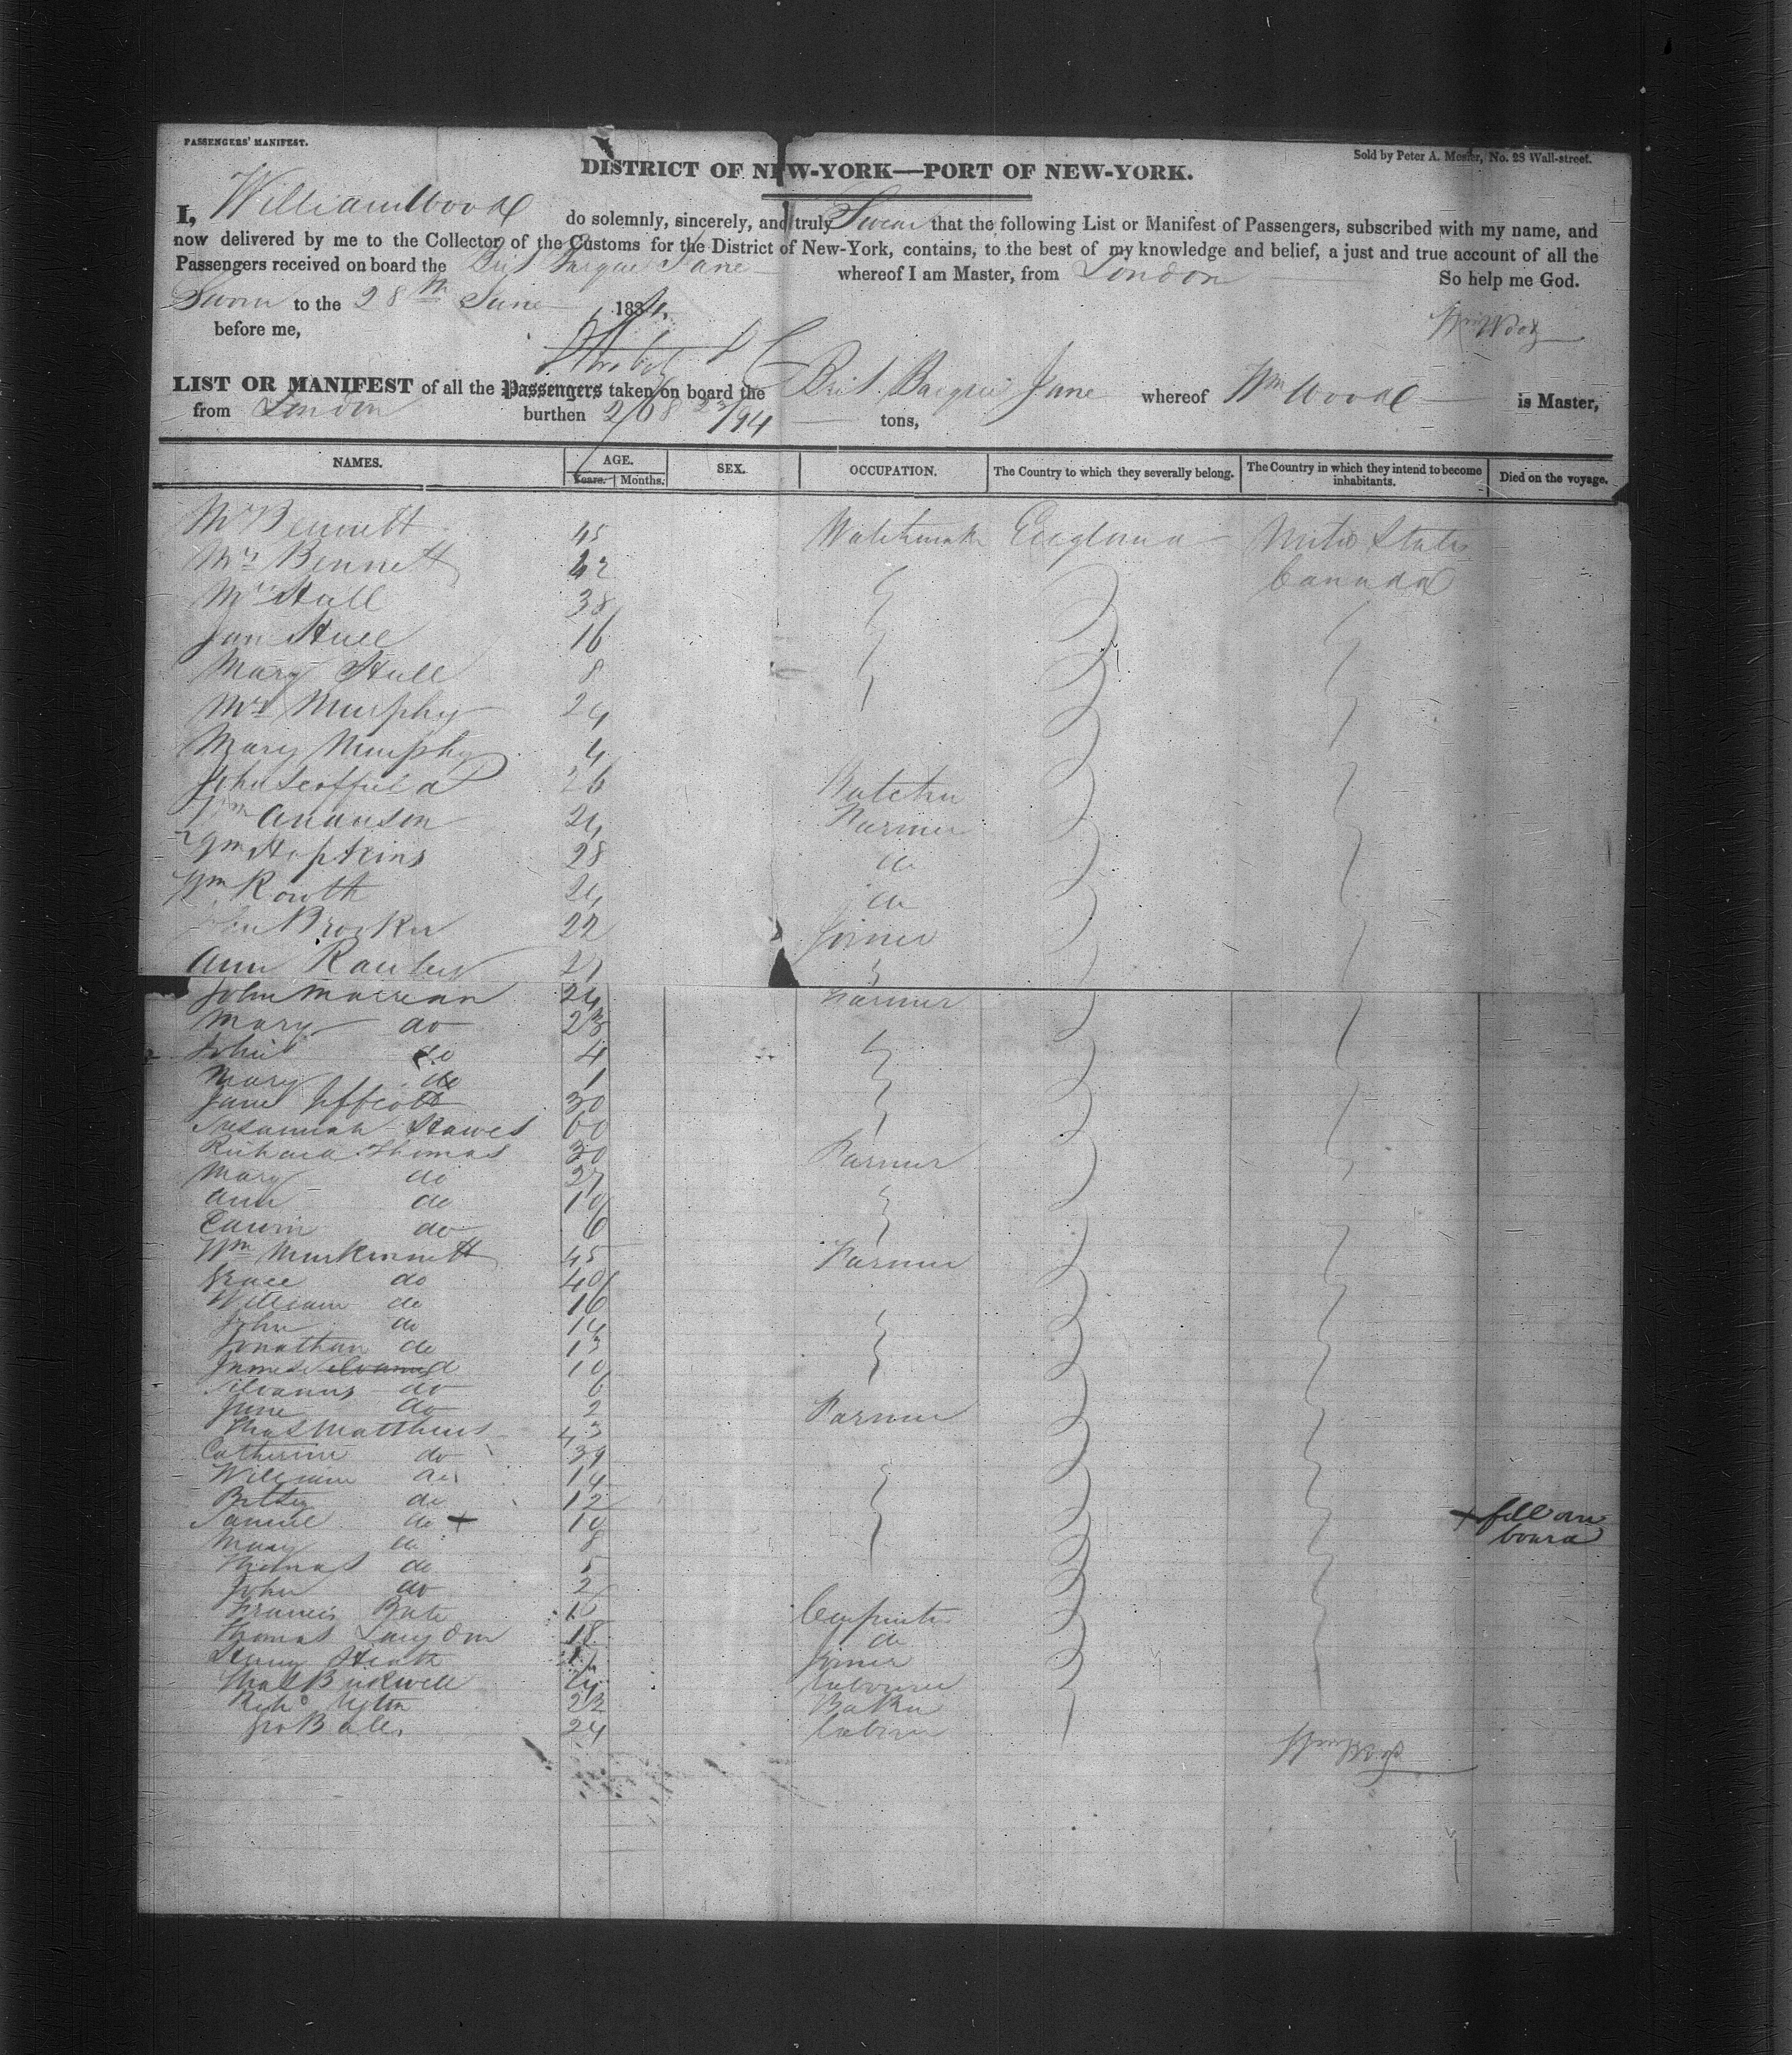 PASSENGERS' MANIFEST.
Sold by Peter A. Mesier, No. 28 Wall-street.
DISTRICT OF NEW-YORK—PORT OF NEW-YORK.
I, William Wood do solemnly, sincerely, and truly Swear that the following List or Manifest of Passengers, subscribed with my name, and
now delivered by me to the Collector of the Customs for the District of New-York, contains, to the best of my knowledge and belief, a just and true account of all the
Passengers received on board the Brit Barque Jane whereof I am Master, from London So help me God.
Sworn to the 28th June 183
before me,
Wm Wood
LIST OR MANIFEST of all the Passengers taken on board the Brit. Barque Jane whereof Wm Wood is Master,
from London burthen 268 23/94 tons,
NAMES. AGE. SEX. OCCUPATION. The Country to which they severally belong. The Country in which they intend to become inhabitants. Died on the voyage.
Years. Months.
Mr Bennett 45 Watchmake England United States
Mrs Bennett 42 Canada
Mrs Hull 38
Jan Hull 16
Mary Hull 8
Mrs Murphy 24
Mary Murphy 4
John Scoffield 26 Butcher
Wm 24 Farmer
Wm Hopkins 28 do
Wm Routh 24 do
Brooker 22 Joiner
Ann 27
John 24 Farmer
Mary do 23
John do 4
Mary do 1
Jane Jeffcott 30
Susannah Hawes 60
Richard Thomas 30 Farmer
Mary do 27
Ann do 10
Edwin do 6
Wm 45 Farmer
Grace do 40
William do 16
John do 14
Jonathan do 13
James do 10
Silvanus do 6
Jane do 2
Thos Matthews 43 Farmer
Catherine do 39
William do 14
Betsy do 12
Samuel do + 10 + fell over
board
Mary do 8
Thomas do 5
John do 2
Francis Bate Carpenter
Thomas Langdon 18 do
Henry Heath Joiner
Thos Labourer
Richd 22 Baker
Geo Bale 24